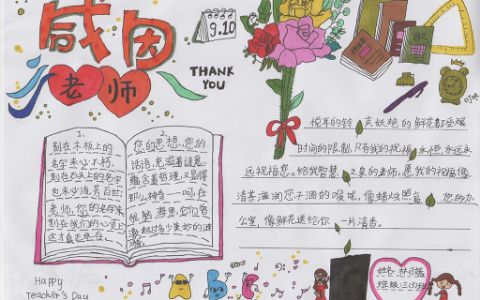 感恩
老师
9.10
THANK
YOU
1.
刻在木板上的
名字未必不朽,
刻在石头上的名字
也未必流芳百世;
老师,您的名字
刻在我们的心灵上
这才真正存在。
2.
您的思想,您的
话语,充溢着诗意
蕴含着哲理,又显得
那么神奇——呵,在
我脑海里,它们曾
激起过多少美妙的涟
漪。
悦耳的铃声妖艳的鲜花都受
时间的限制,只有我的祝福永恒永远永
远祝福您,给我智慧之泉的老师,愿我的祝福像
清茶滋润您干涸的喉咙,像蜡烛照 您的办
公室,像鲜花送给你一片清香。
Happy
Teacher's Day
A B C
姓名:
班级: